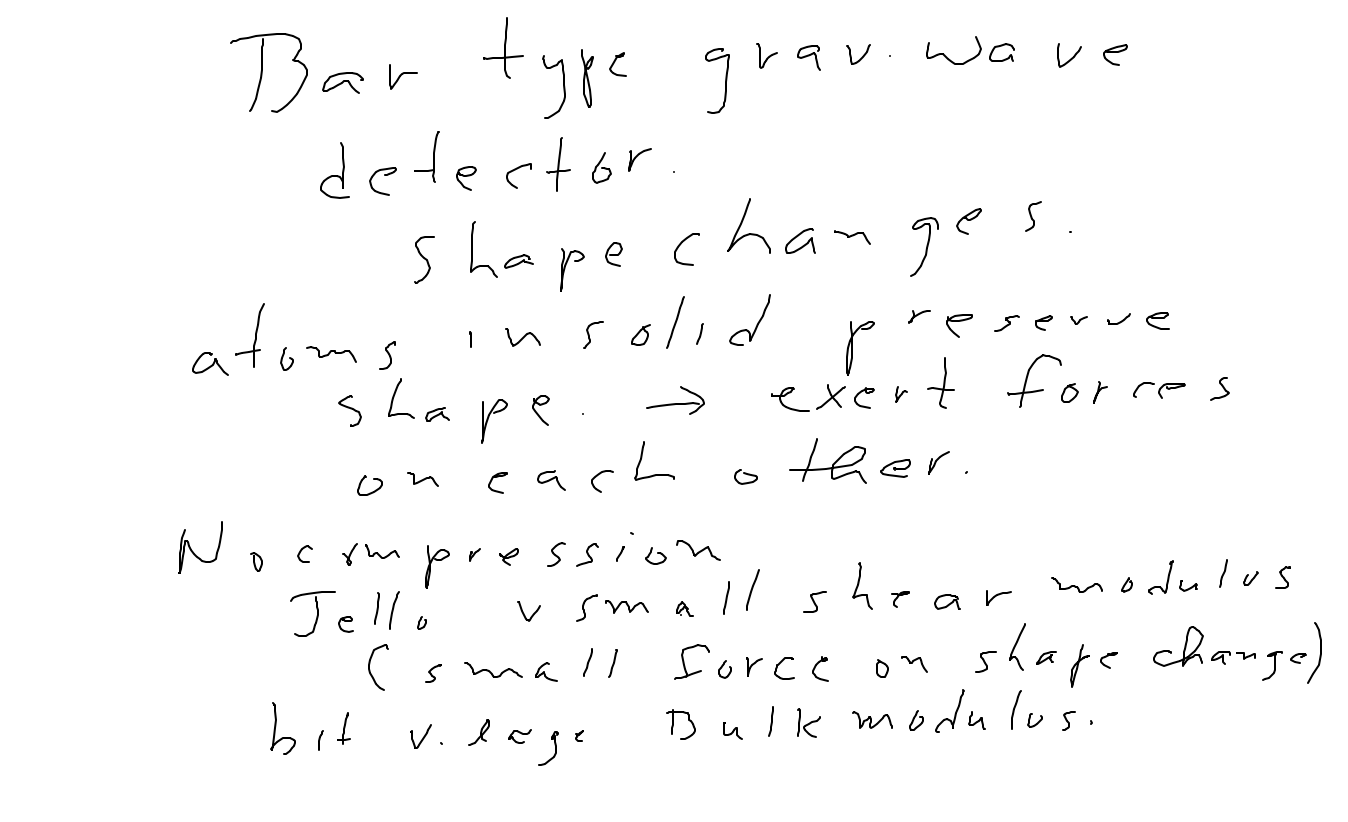 Bar type grav. wave
detector.
shape changes.
atoms in solid preserve
shape. → exert forces
on each other.
No compression
Jello v small shear modulus
(small force on shape change)
bit v. large Bulk modulus.